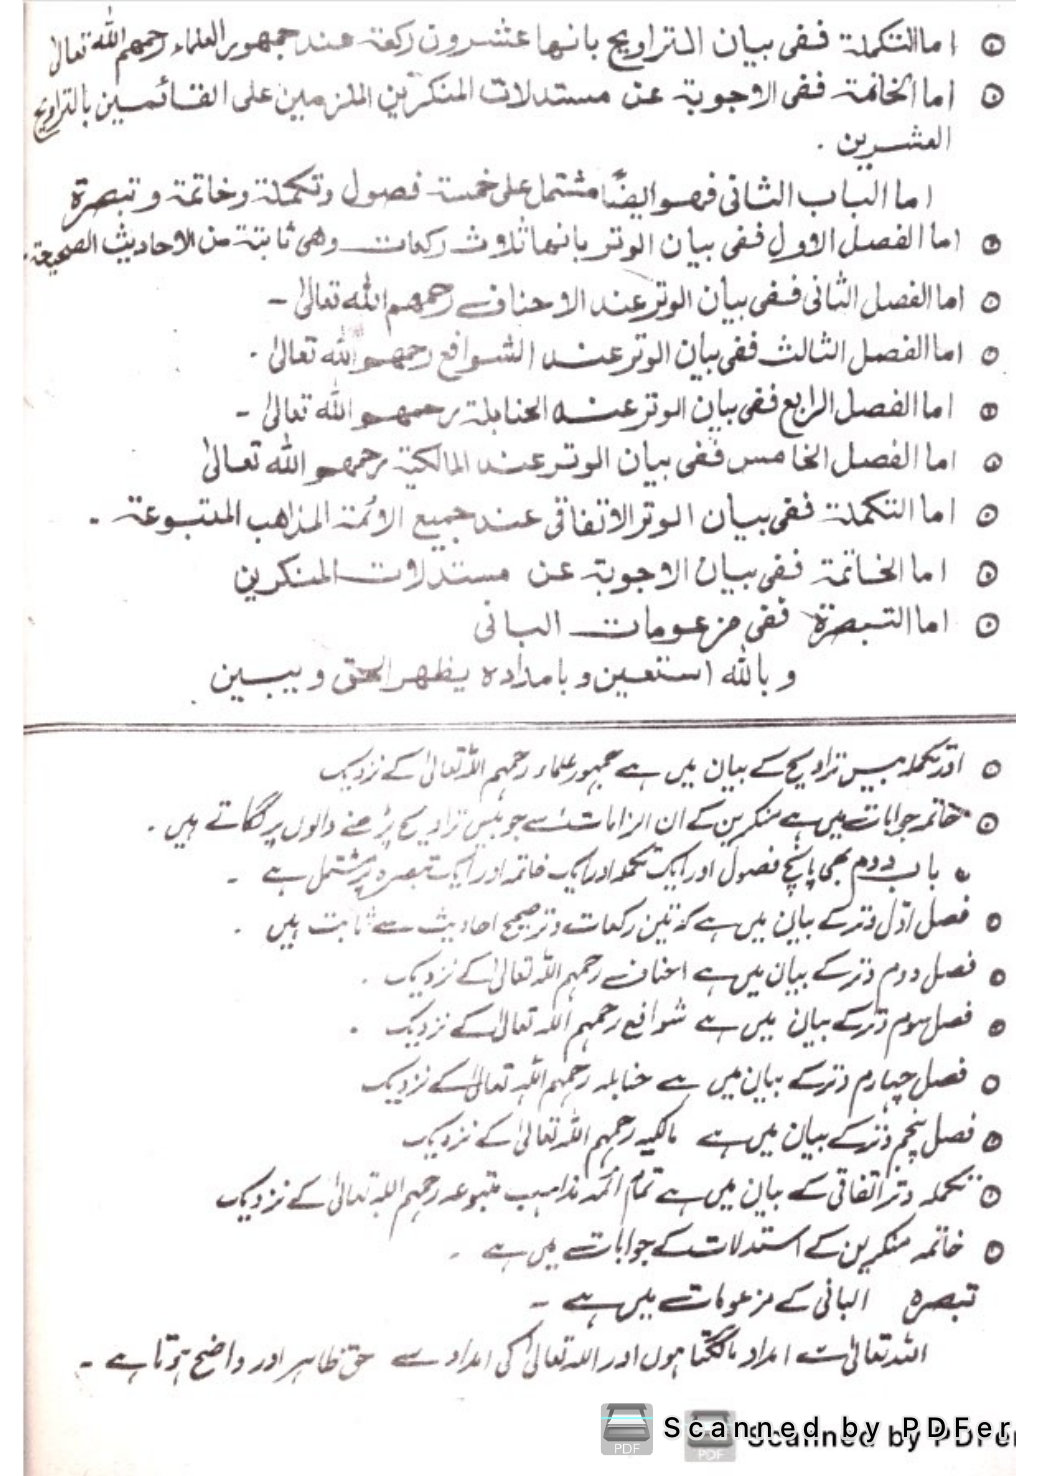 اما التكملة ففى بيان التراويح بانها عشرون ركعة عند جمهور العلماء رحمهم الله تعالىٰ
اما الخاتمة ففى الاجوبة عن مستدلات المنكرين الملزمين على القائمين بالتراويح
العشرين .
اما الباب الثانى فهو ايضًا مشتمل على خمسة فصول وتكملة وخاتمة وتبصرة
اما الفصل الاول ففى بيان الوتر بانها ثلاث ركعات وهى ثابتة من الاحاديث الصحيحة
اما الفصل الثانى ففى بيان الوتر عند الاحناف رحمهم الله تعالىٰ -
اما الفصل الثالث ففى بيان الوتر عند الشوافع رحمهم الله تعالىٰ .
اما الفصل الرابع ففى بيان الوتر عند الحنابلة رحمهم الله تعالىٰ -
اما الفصل الخامس ففى بيان الوتر عند المالكية رحمهم الله تعالىٰ
اما التكملة ففى بيان الوتر الاتفاقى عند جميع الائمة المذاهب المتبوعة -
اما الخاتمة ففى بيان الاجوبة عن مستدلات المنكرين
اما التبصرة ففى مزعومات البانى
و بالله استعين و بامداده يظهر الحق و يبين
اور تکملہ بیس تراویح کے بیان میں ہے جمہور علماء رحمہم اللہ تعالیٰ کے نزدیک
خاتمہ جوابات میں ہے منکرین کے ان الزامات سے جو بیس تراویح پڑھنے والوں پر لگاتے ہیں .
باب دوم بھی پانچ فصول اور ایک تکملہ اور ایک خاتمہ اور ایک تبصرہ پر مشتمل ہے -
فصل اوّل وتر کے بیان میں ہے کہ تین رکعات وتر صحیح احادیث سے ثابت ہیں .
فصل دوم وتر کے بیان میں ہے احناف رحمہم اللہ تعالیٰ کے نزدیک .
فصل سوم وتر کے بیان میں ہے شوافع رحمہم اللہ تعالیٰ کے نزدیک .
فصل چہارم وتر کے بیان میں ہے حنابلہ رحمہم اللہ تعالیٰ کے نزدیک
فصل پنجم وتر کے بیان میں ہے مالکیہ رحمہم اللہ تعالیٰ کے نزدیک
تکملہ وتر اتفاقی کے بیان میں ہے تمام ائمہ مذاہب متبوعہ رحمہم اللہ تعالیٰ کے نزدیک
خاتمہ منکرین کے استدلات کے جوابات میں ہے -
تبصرہ البانی کے مزعومات میں ہے -
اللہ تعالیٰ سے امداد مانگتا ہوں اور اللہ تعالیٰ کی امداد سے حق ظاہر اور واضح ہوتا ہے -
Scanned by PDFer
Scanned by PDFer
PDF
PDF